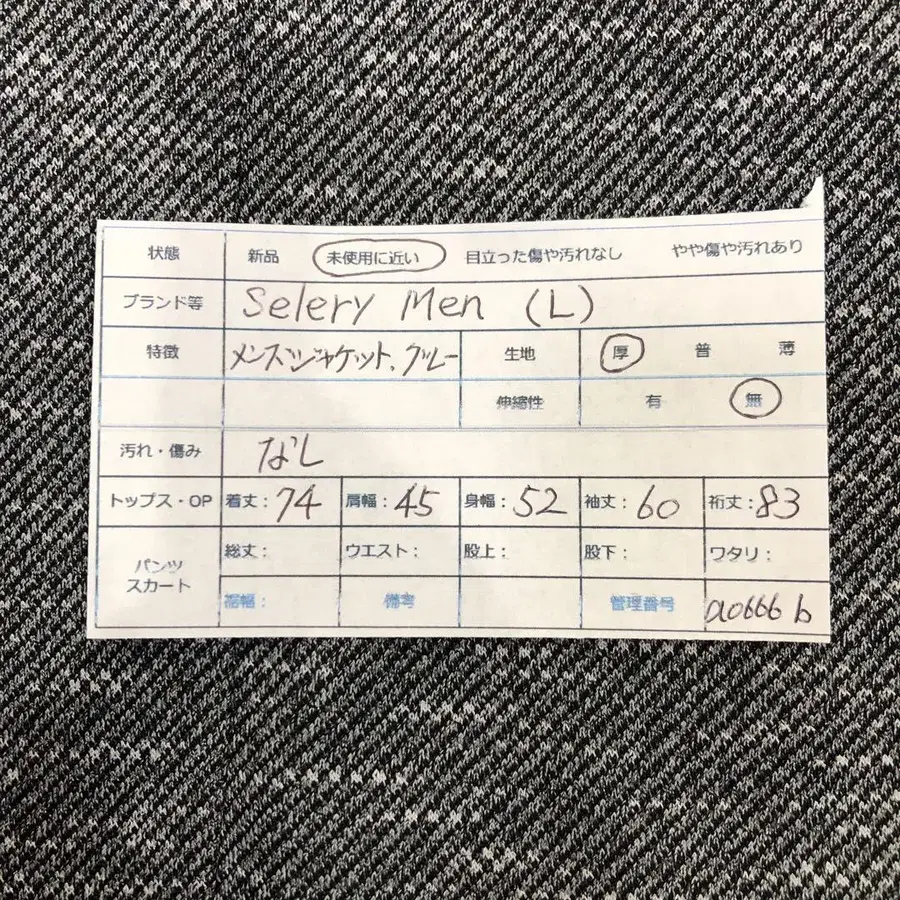 状態 新品 未使用に近い 目立った傷や汚れなし やや傷や汚れあり
ブランド等 Selery Men (L)
特徴 メンズジャケット、グレー 生地 厚 普 薄
伸縮性 有 無
汚れ・傷み なし
トップス・OP 着丈：74 肩幅：45 身幅：52 袖丈：60 裄丈：83
パンツ スカート 総丈： ウエスト： 股上： 股下： ワタリ：
裾幅： 備考 管理番号 a0666 b